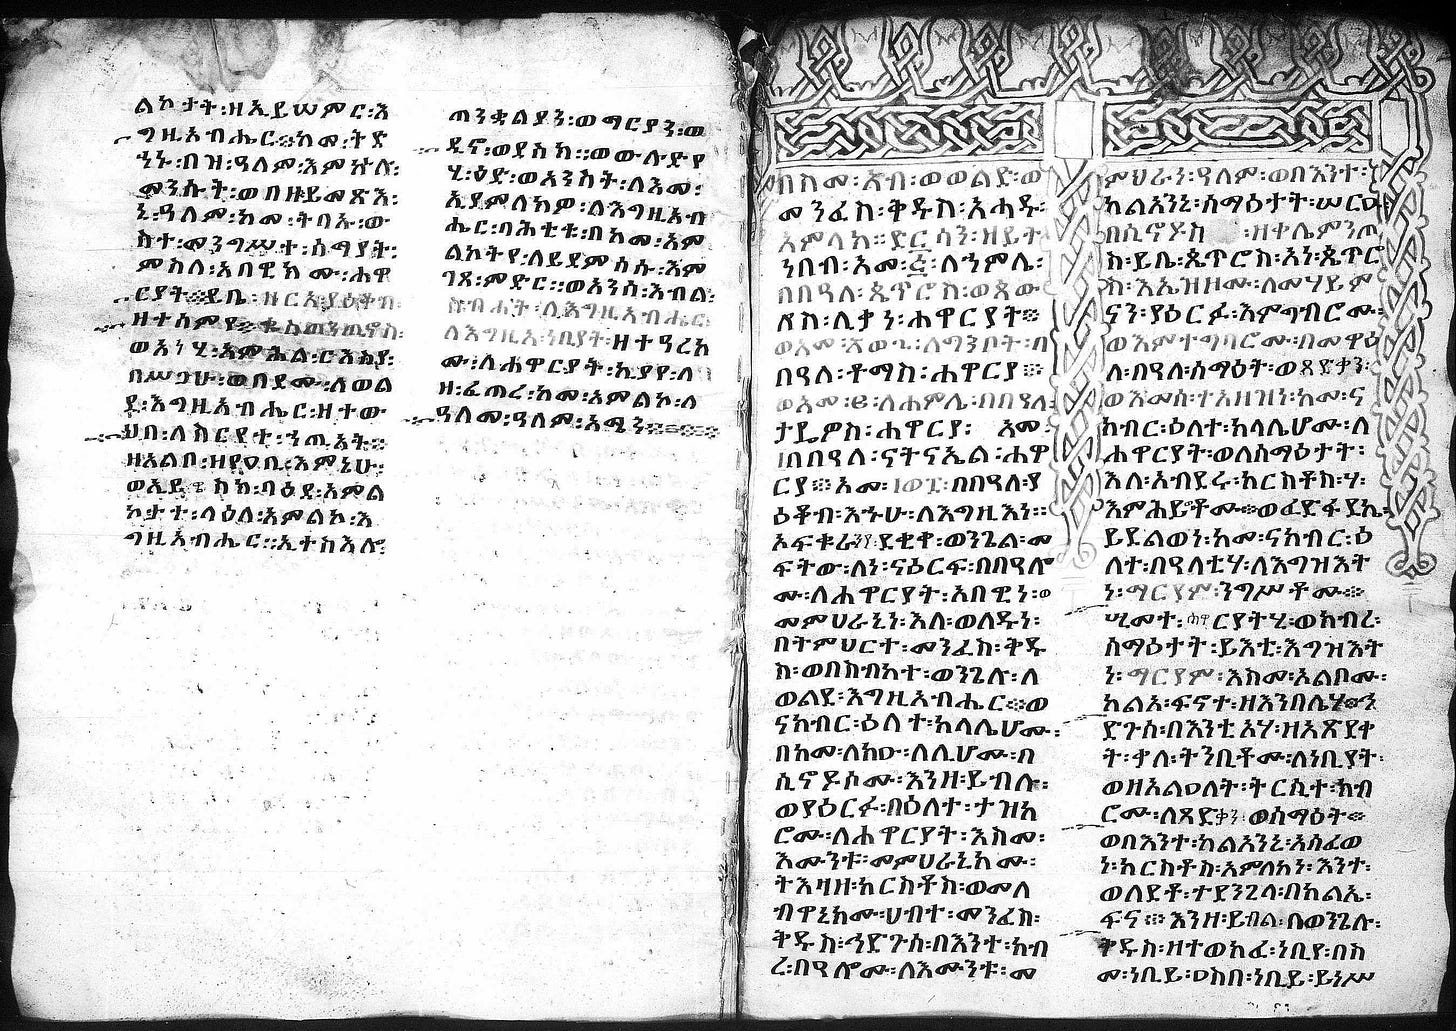 ልኮታት፡ዘኢይሠምር፡እ
ግዚአብሔር።ከመ፡ትድ
ኀኑ፡በዝ፡ዓለም፡እምኵሉ፡
መንሱት፡ወበዘይመጽእ፡
ኒ፡ዓለም፡ከመ፡ትባኡ፡ው
ስተ፡መንግሥተ፡ሰማያት፡
ምስለ፡አበዊክሙ፡ሐዋ
ርያት።ይቤ፡ዘርአያዕቆብ
ዘተሰምየ፡ቈስጠንጢኖስ፡
ወአነሂ፡አምሕል፡ርእስየ፡
በሥጋሁ፡ወበደሙ፡ለወል
ደ፡እግዚአብሔር፡ዘተው
ህበ፡ለስርየተ፡ኀጢአት።
ዘአልቦ፡ዘየዐቢ፡እምኔሁ፡
ወኢይ ክክ፡ባዕደ፡አምል
ኮታተ፡ላዕለ፡አምልኮ፡እ
ግዚአብሔር።ኢተከእሎ፡
ጠንቋልያን፡ወማርያን፡ወ
ዲኖ፡ወደስክ።ወውሉድየ
ሂ፡ዕድ፡ወአንስት፡ለእመ፡
ኢያምለክዎ፡ለእግዚአብ
ሔር፡በሕቲቱ፡በከመ፡አም
ልኮትየ፡ለይደምሰሱ፡እም
ገጸ፡ምድር።ወአንሰ፡እብል፡
ስብሐት፡ለእግዚአብሔር፡
ለእግዚአ፡ነቢያት፡ዘተዓረከ
ሙ፡ለሐዋርያት፡ኪያየ፡ለ
ዘ፡ፈጠረ፡ከመ፡አምልኮ፡ለ
ዓለመ፡ዓለም፡አሜን።
በስመ፡አብ፡ወወልድ፡ወ
መንፈስ፡ቅዱስ፡አሓዱ፡
አምላክ።ድርሳን፡ዘይት
ነበብ፡አመ፡፭፡ለኀምሌ፡
በበዓለ፡ጴጥሮስ፡ወጳው
ሎስ፡ሊቃነ፡ሐዋርያት።
ወአመ፡ ለግንቦት፡በ
በዓለ፡ቶማስ፡ሐዋርያ።
ወአመ፡፱፡ለሐምሌ፡በበዓለ፡
ታዴዎስ፡ሐዋርያ፡ አመ፡
በበዓለ፡ናትናኤል፡ሐዋ
ርያ።አመ፡ በበዓለ፡ያ
ዕቆብ፡እኁሁ፡ለእግዚእነ።
አፍቁራን፡ደቂቀ፡ወንጌል፡መ
ፍትው፡ለነ፡ናዕርፍ፡በበዓሎ
ሙ፡ለሐዋርያት፡አበዊነ፡ወ
መምህራኒነ፡እለ፡ወለዱነ፡
በትምህርተ፡መንፈስ፡ቅዱ
ስ፡ወበስብከተ፡ወንጌሉ፡ለ
ወልደ፡እግዚአብሔር።ወ
ናከብር፡ዕለተ፡ከላሌሆሙ፡
በከመ፡ለከዉ፡ለሊሆሙ፡በ
ሲኖዶሶሙ፡እንዘ፡ይብሉ፡
ወያዕርፉ፡በዕለተ፡ታዝካ
ሮሙ፡ለሐዋርያት፡እስመ፡
እሙንቱ፡መምህራኒክሙ፡
ትእዛዘ፡ክርስቶስ፡ወመለ
ብዋኒክሙ፡ሀብተ፡መንፈስ፡
ቅዱስ፡ኅድጉሰ፡በእንተ፡ክብ
ረ፡በዓሎሙ፡ለእሙንቱ፡መ
ምህራነ፡ዓለም፡ወበእንተ፡
ከልአንኒ፡ሰማዕታት፡ሠርዑ
በሲኖዶስ ፡ዘቀሌምንጦ
ስ፡ይቤ፡ጴጥሮስ፡አነ፡ጴጥሮ
ስ፡እኤዝዘሙ፡ለመሃይም
ናን፡ያዕርፉ፡እምግብሮሙ፡
ወእምተግባሮሙ፡በመዋዕ
ለ፡በዓለ፡ሰማዕት፡ወጻድቃን፡
ወእመሰ፡ተአዘዝነ፡ከመ፡ና
ከብር፡ዕለተ፡ከላሌሆሙ፡ለ
ሐዋርያት፡ወለሰማዕታት፡
እለ፡አብደሩ፡ክርስቶስ፡ሃ፡
እምሕይወቶሙ።ወፈድፋደኬ፡
ይደልወነ፡ከመ፡ናከብር፡ዕ
ለተ፡በዓላቲሃ፡ለእግዝእት
ነ፡ማርያም፡ንግሥቶሙ።
ሢመተ፡ሐዋርያትሂ፡ወክብረ፡
ሰማዕታት፡ይእቲ፡እግዝእት
ነ፡ማርያም፡እስመ፡አልቦሙ፡
ከልአ፡ፍኖተ፡ዘእንበሌሃ።ኅ
ድጉሰ፡በእንቲአሃ፡ዘአጽደቀ
ት፡ቃለ፡ትንቢቶሙ፡ለነቢያት፡
ወዘአልዐለት፡ትርሲተ፡ክብ
ሮሙ፡ለጻድቃን፡ወሰማዕት።
ወበእንተ፡ከልአንኒ፡አሰፈወ
ነ፡ክርስቶስ፡አምላክነ፡እንተ፡
ወለደቶ፡ተደንገላ፡በክልኤ፡
ፍና።እንዘ፡ይብል፡በወንጌሉ፡
ቅዱስ፡ዘተወክፈ፡ነቢየ፡በስ
መ፡ነቢይ፡ዐስበ፡ነቢይ፡ይነሥ